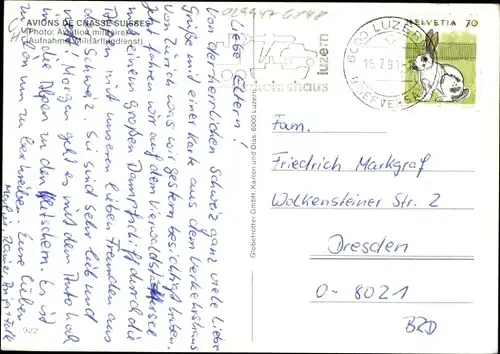 AVIONS DE CHASSE SUISSES
(Photo: Aviation militaire)
(Aufnahme Militärflugdienst)
Liebe Eltern!
Von der herrlichen Schweiz ganz viele liebe
Grüße mit einer Karte aus dem Verkehrshaus
von Zürich was wir gestern besichtigt haben.
Jetzt fahren wir auf dem Vierwaldstättersee
mit einem großen Dampfschiff durch die
mit unseren lieben Freunden aus
der Schweiz. Sie sind sehr lieb und
nett! Morgen geht es mit dem Auto hoch
in die Alpen zu den Gletschern. Es ist
zu schön um zu beschreiben. Eure lieben
922
Globetrotter GmbH, Karten und Dias, 6000 Luzern
verkehrshaus
luzern
6000 LUZERN
15.7.91
BRIEFVERSAND
HELVETIA 70
Fam.
Friedrich Markgraf
Wolkensteiner Str. 2
Dresden
O-8021
BRD